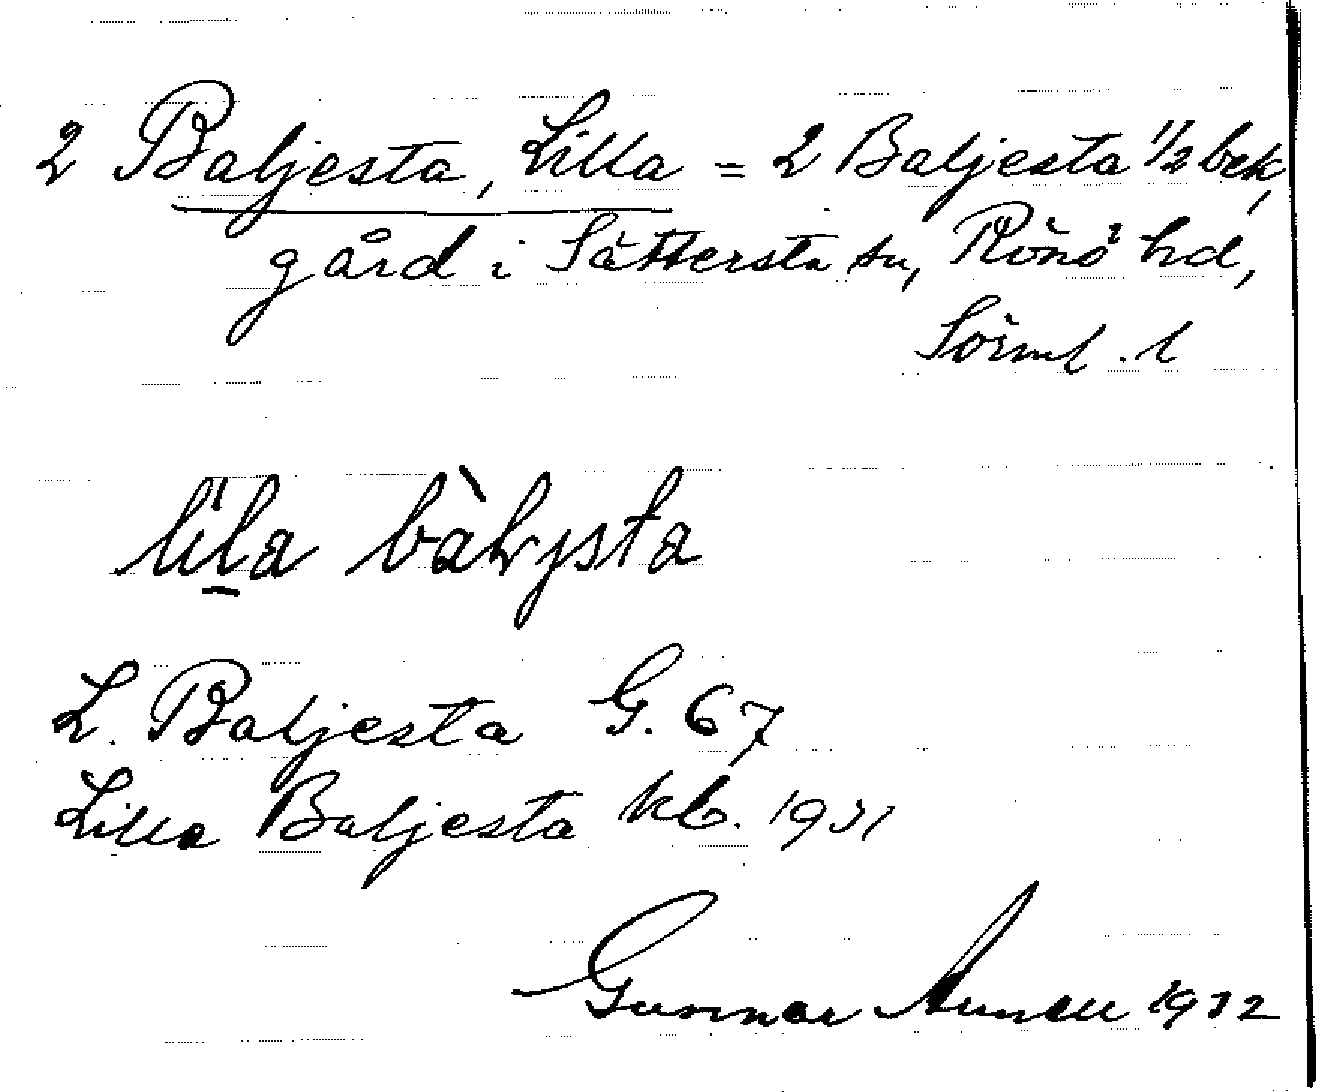 2 Baljesta, Lilla = 2 Baljesta 1/2 bek,
gård i Sättersta sn, Rönö hd,
Sörml. l
lila bàlysta
L. Baljesta G. 67
Lilla Baljesta kb. 1931
Gunnar 1932